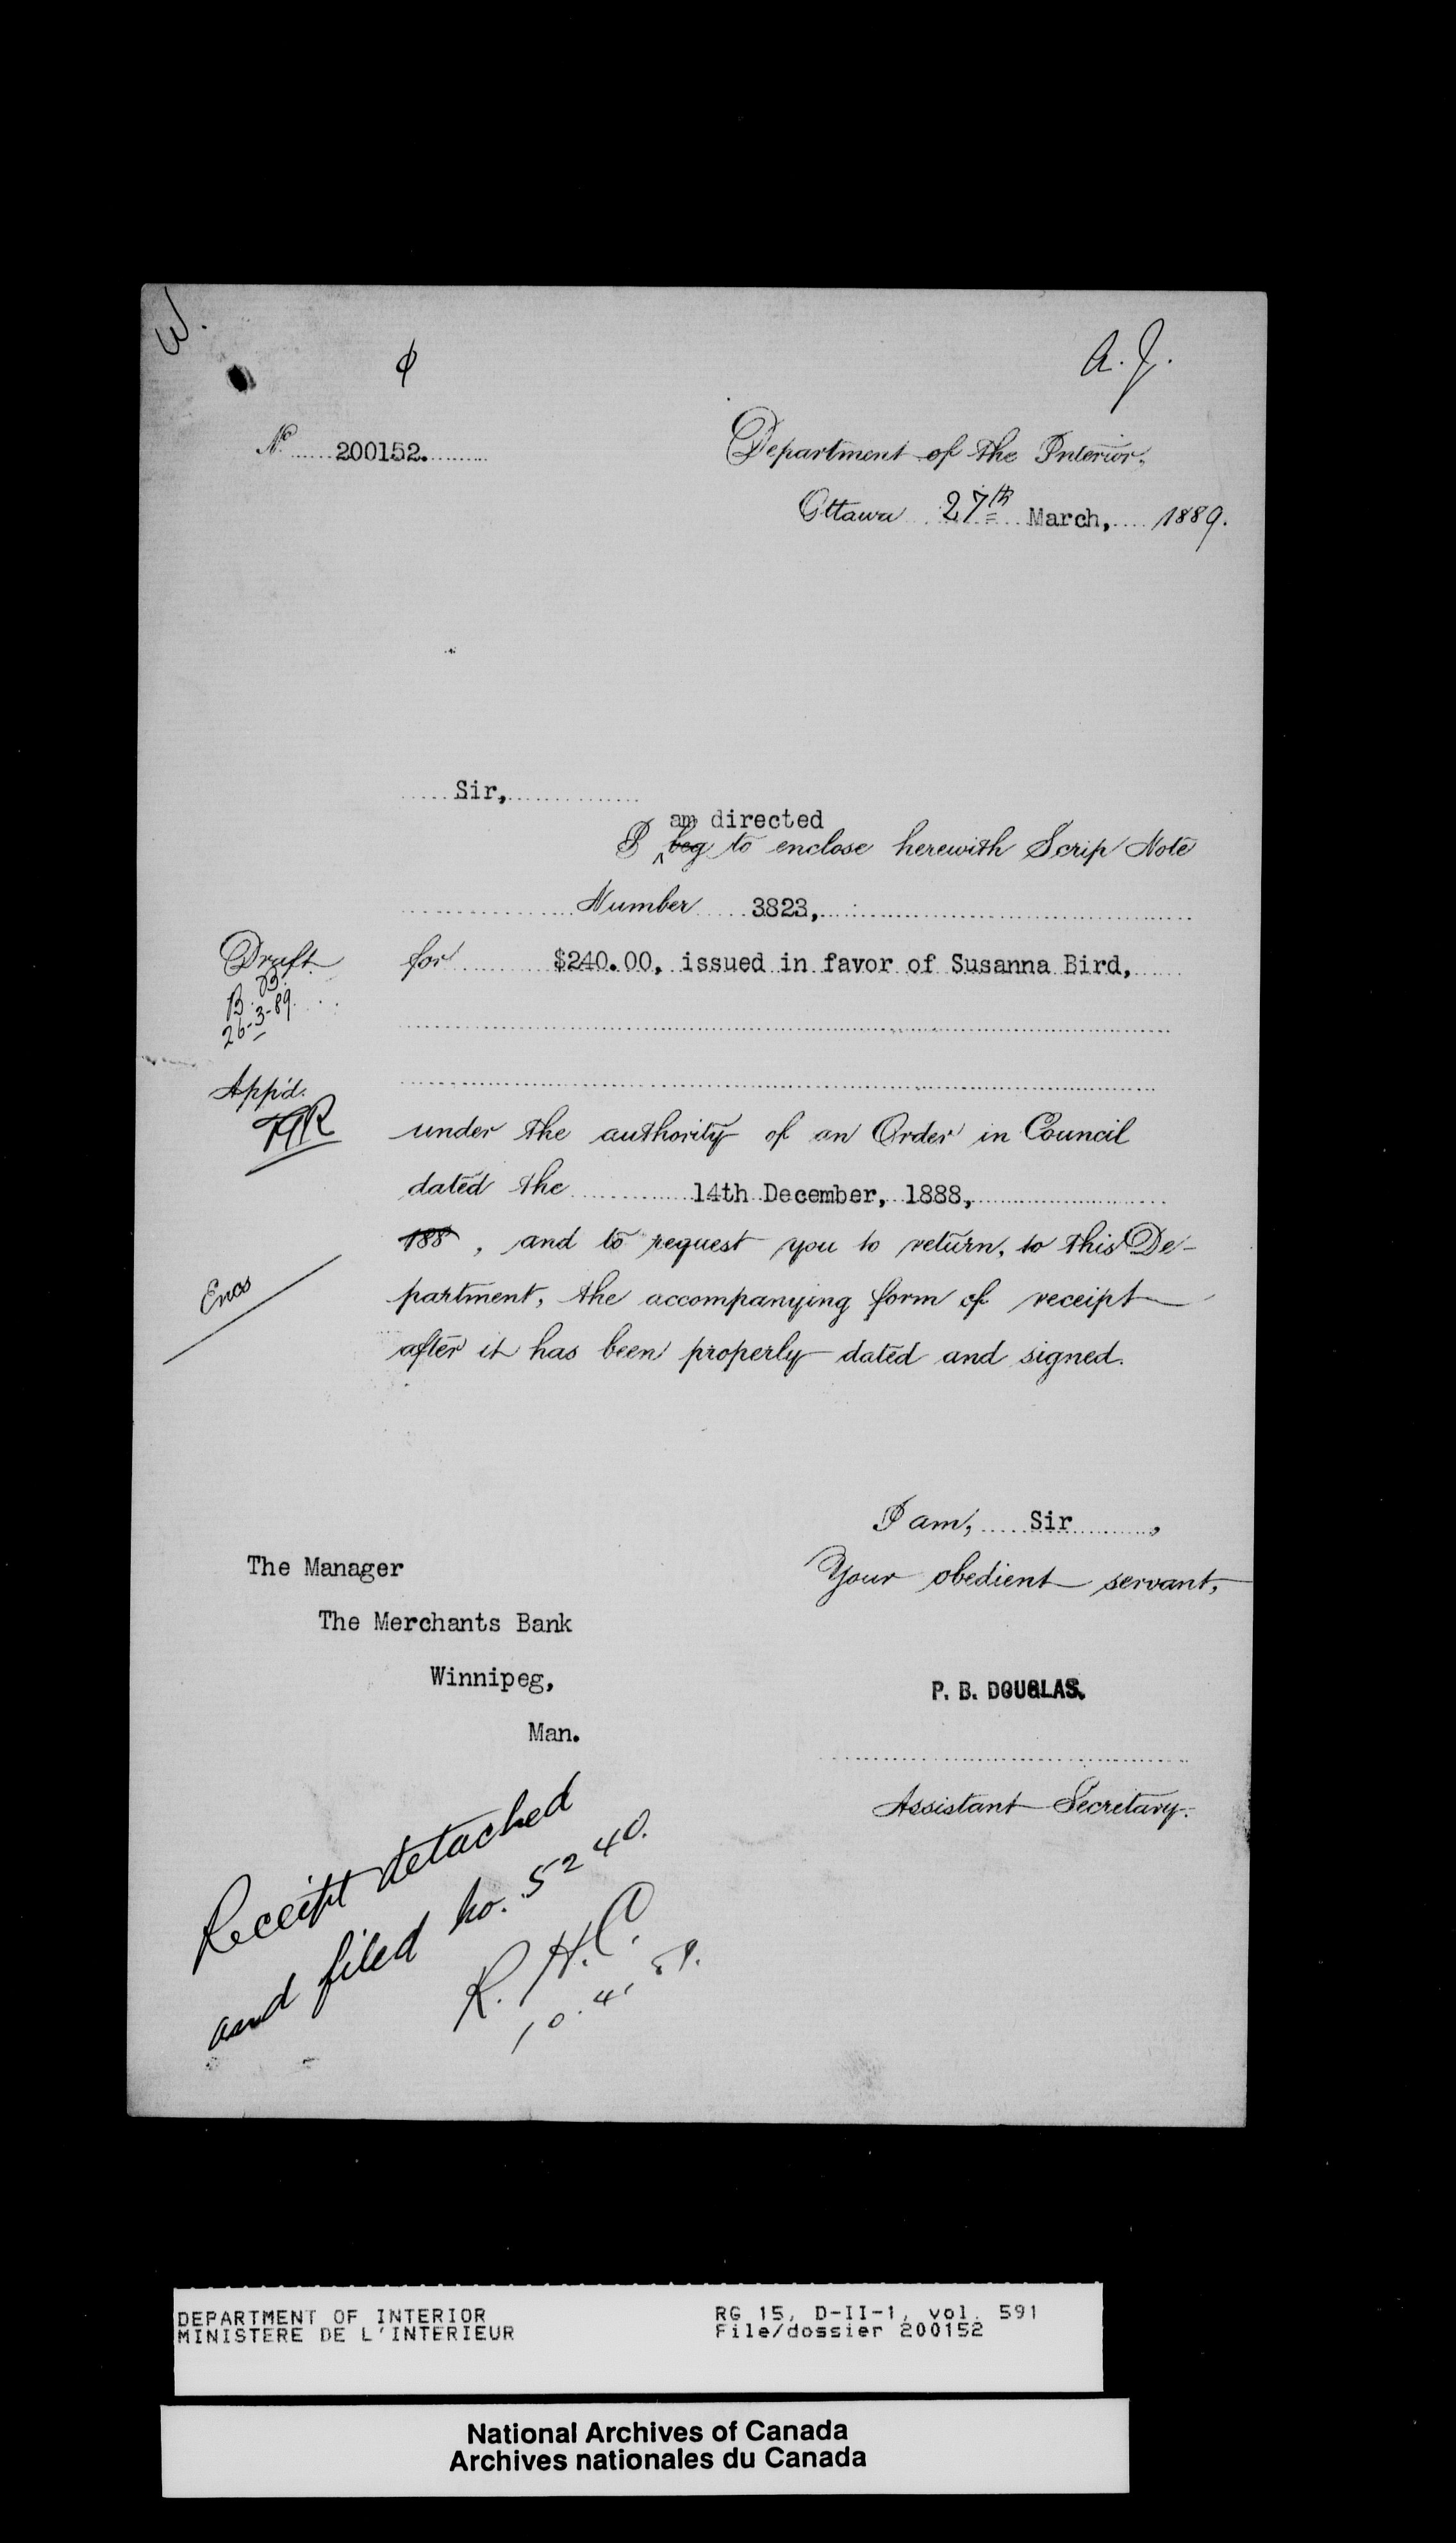 W.
A. J.
No 200152.
Department of the Interior,
Ottawa 27th March, 1889.
Sir,
am directed
I beg to enclose herewith Scrip Note
Number 3823,
for $240.00, issued in favor of Susanna Bird,
Draft
B. B.
26-3-89.
App'd.
under the authority of an Order in Council
dated the 14th December, 1888,
188 , and to request you to return, to this De-
Encs
partment, the accompanying form of receipt
after it has been properly dated and signed.
I am, Sir ,
Your obedient servant,
The Manager
The Merchants Bank
Winnipeg,
Man.
P. B. DOUGLAS.
Assistant Secretary.
Receipt detached
and filed no. 5240.
R. H. C.
10. 4. 89.
DEPARTMENT OF INTERIOR
MINISTERE DE L'INTERIEUR
RG 15, D-II-1, vol. 591
File/dossier 200152
National Archives of Canada
Archives nationales du Canada